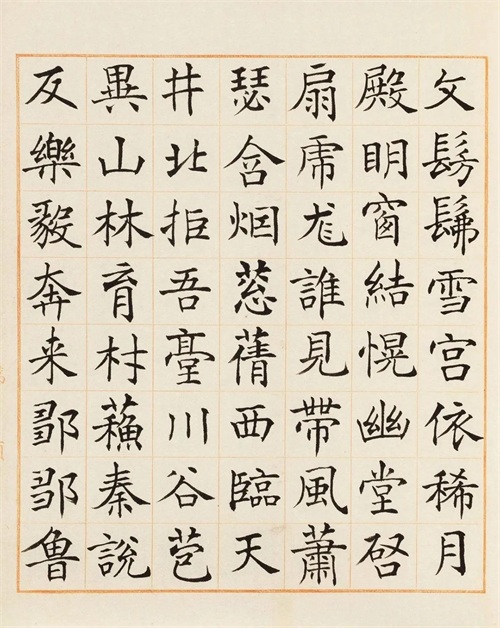 文髣髴雪宮依稀月
殿明窗結幌幽堂啓
扇虎尨誰見帶風蕭
瑟含烟葱蒨西臨天
井北拒吾臺川谷苞
異山林育村蘇秦說
反樂毅奔来鄙鄒魯